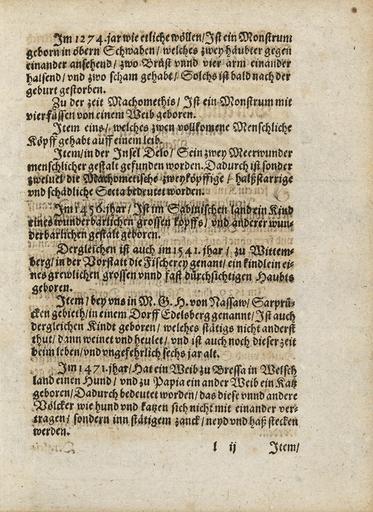 Im 1274. jar wie etliche wöllen/ Ist ein Monstrum
geborn in obern Schwaben/ welches zwey häubter gegen
einander ansehend/ zwo Brüst vnnd vier arm einander
halsend/ vnd zwo scham gehabt/ Solchs ist bald nach der
geburt gestorben.
Zu der zeit Machomethis/ Ist ein Monstrum mit
vier füssen von einem Weib geboren.
Item eins/ welches zwen vollkomene Menschliche
Köpff gehabt auff einem leib.
Item/ in der Insel Delo/ Sein zwey Meerwunder
menschlicher gestalt gefunden worden. Dadurch ist sonder
zweiuel die Machmetische zweyköpffige/ halßstarrige
vnd schädliche Secta bedeutet worden.
Im 1456. jhar/ Ist im Sabinischen land ein Kind
eines wunderbarlichen grossen kopffs/ vnd anderer wun-
derbarlichen gestalt geboren.
Dergleichen ist auch im 1541. jhar/ zu Wittem-
berg/ in der Vorstatt die Fischerey genant/ ein kindlein ei-
nes grewlichen grossen vnnd fast durchsichtigen Haubts
geboren.
Item/ bey vns in M. G. H. von Nassaw/ Sarprü-
cken gebieth/ in einem Dorff Edelsberg genannt/ Ist auch
dergleichen Kindt geboren/ welches stätigs nicht anderst
thut/ dann weinet vnd heulet/ vnd ist auch noch dieser zeit
beim leben/ vnd vngefehrlich sechs jar alt.
Im 1471. jhar/ Hat ein Weib zu Bressa in Welsch
land einen Hund/ vnd zu Papia ein ander Weib ein Katz
geboren/ Dadurch bedeutet worden/ das diese vnnd andere
Völcker wie hund vnd katzen sich nicht mit einander ver-
tragen/ sondern inn stätigem zanck/ neyd vnd haß stecken
werden.
l ij Item/